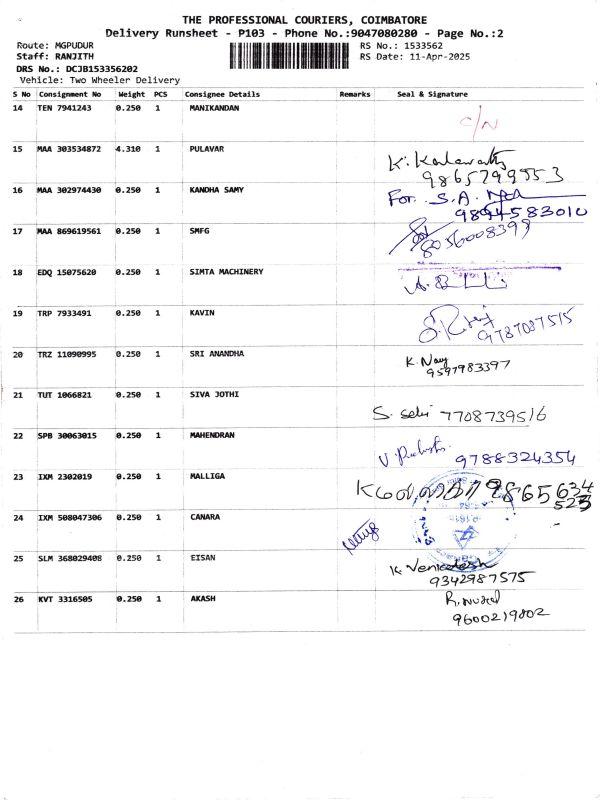 THE PROFESSIONAL COURIERS, COIMBATORE
Delivery Runsheet - P103 - Phone No.:9047080280 - Page No.:2
Route: MGPUDUR RS No.: 1533562
Staff: RANJITH RS Date: 11-Apr-2025
DRS No.: DCJB153356202
Vehicle: Two Wheeler Delivery
S No Consignment No Weight PCS Consignee Details Remarks Seal & Signature
14 TEN 7941243 0.250 1 MANIKANDAN C/N
15 MAA 303534872 4.310 1 PULAVAR K. Kalavathy
9865799553
16 MAA 302974430 0.250 1 KANDHA SAMY For. S.A.
9894583010
17 MAA 869619561 0.250 1 SMFG 8056008399
18 EDQ 15075620 0.250 1 SIMTA MACHINERY
19 TRP 7933491 0.250 1 KAVIN
9787087515
20 TRZ 11090995 0.250 1 SRI ANANDHA K. Nay
9597983397
21 TUT 1066821 0.250 1 SIVA JOTHI S. Selvi 7708739516
22 SPB 30063015 0.250 1 MAHENDRAN V. 9788324354
23 IXM 2302019 0.250 1 MALLIGA 9865634
523
24 IXM 508047306 0.250 1 CANARA
25 SLM 368029408 0.250 1 EISAN K. Venkadesh
9342987575
26 KVT 3316505 0.250 1 AKASH R.
9600219802